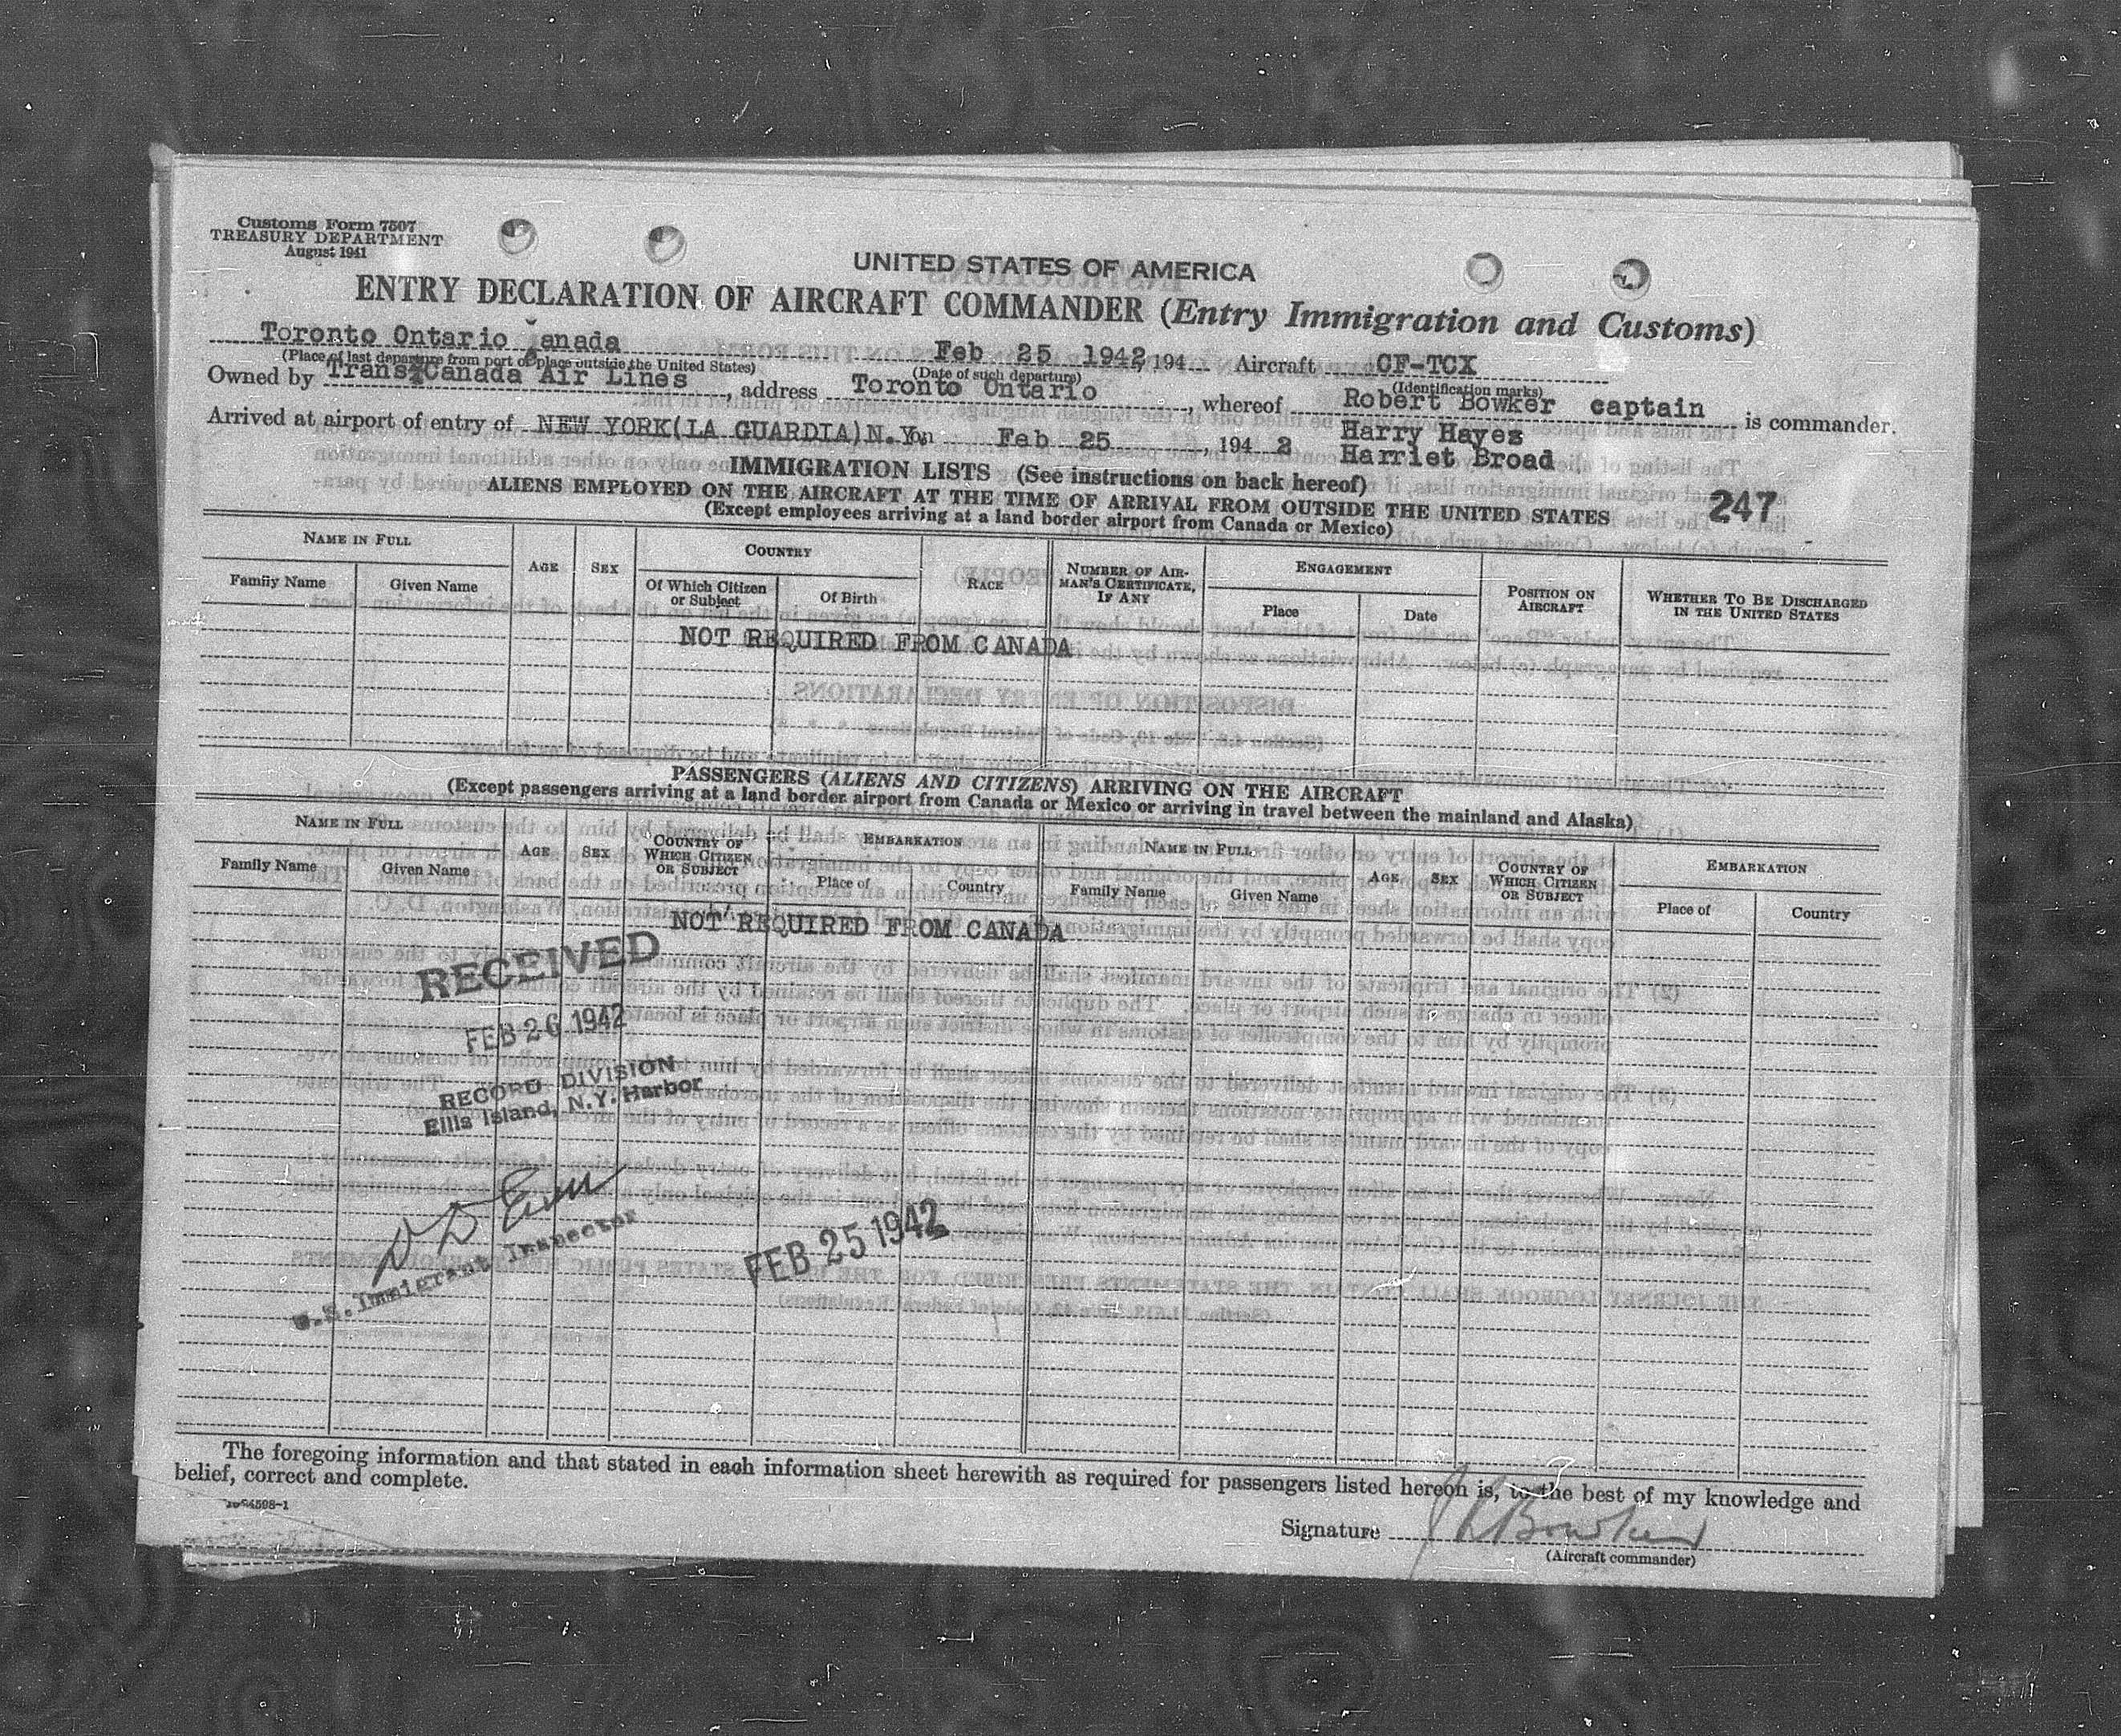 Customs Form 7507
TREASURY DEPARTMENT
August 1941
UNITED STATES OF AMERICA
ENTRY DECLARATION OF AIRCRAFT COMMANDER (Entry Immigration and Customs)
Toronto Ontario Canada Feb 25 1942, 194 Aircraft CF-TCX
(Place of last departure from port or place outside the United States) (Date of such departure) (Identification marks)
Owned by Trans-Canada Air Lines, address Toronto Ontario, whereof Robert Bowker captain is commander.
Arrived at airport of entry of NEW YORK(LA GUARDIA)N.Y. on Feb 25, 194 2 Harry Hayes
Harriet Broad
IMMIGRATION LISTS (See instructions on back hereof)
ALIENS EMPLOYED ON THE AIRCRAFT AT THE TIME OF ARRIVAL FROM OUTSIDE THE UNITED STATES 247
(Except employees arriving at a land border airport from Canada or Mexico)
NAME IN FULL AGE SEX COUNTRY RACE NUMBER OF AIRMAN'S CERTIFICATE, IF ANY ENGAGEMENT POSITION ON AIRCRAFT WHETHER TO BE DISCHARGED IN THE UNITED STATES
Family Name Given Name Of Which Citizen or Subject Of Birth Place Date
NOT REQUIRED FROM CANADA
PASSENGERS (ALIENS AND CITIZENS) ARRIVING ON THE AIRCRAFT
(Except passengers arriving at a land border airport from Canada or Mexico or arriving in travel between the mainland and Alaska)
NAME IN FULL AGE SEX COUNTRY OF WHICH CITIZEN OR SUBJECT EMBARKATION NAME IN FULL AGE SEX COUNTRY OF WHICH CITIZEN OR SUBJECT EMBARKATION
Family Name Given Name Place of Country Family Name Given Name Place of Country
NOT REQUIRED FROM CANADA
RECEIVED
FEB 26 1942
RECORD DIVISION
Ellis Island, N.Y. Harbor
U.S. Immigrant Inspector
FEB 25 1942
The foregoing information and that stated in each information sheet herewith as required for passengers listed hereon is, to the best of my knowledge and
belief, correct and complete.
Signature Bowker
(Aircraft commander)